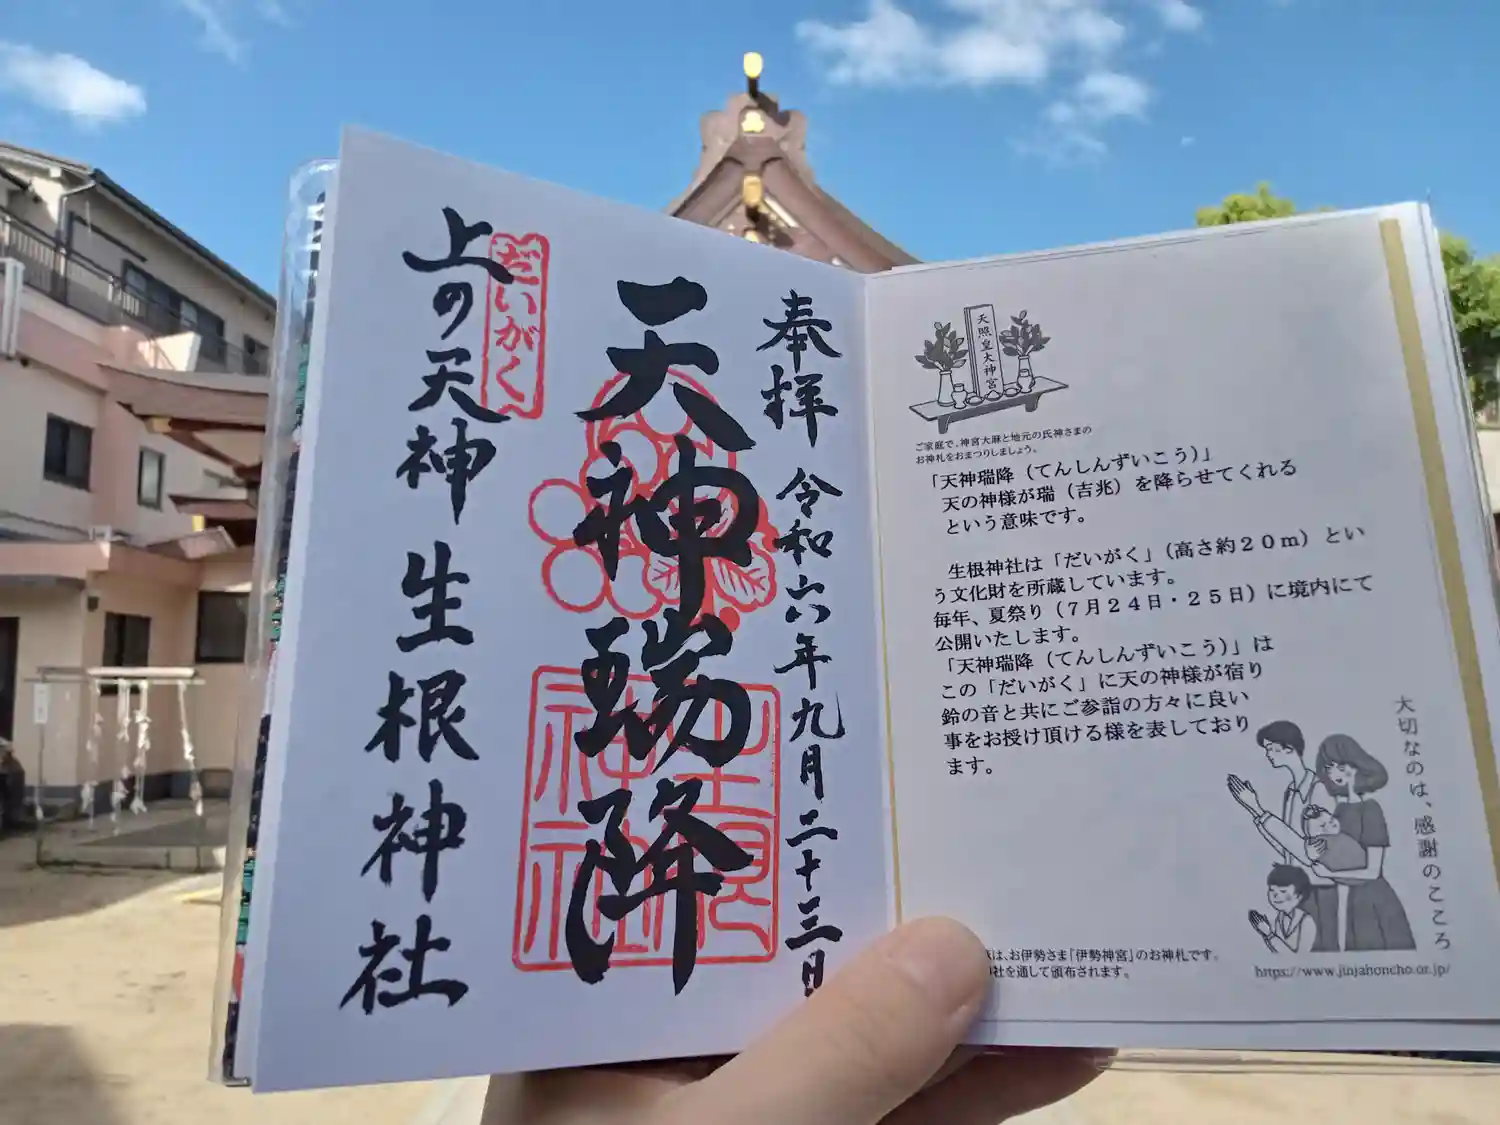 奉拝 令和六年九月二十三日
天神瑞降
だいがく
上の天神 生根神社
生根神社
天照皇大神宮
ご家庭で、神宮大麻と地元の氏神さまの
お神札をおまつりしましょう。
「天神瑞降（てんしんずいこう）」
天の神様が瑞（吉兆）を降らせてくれる
という意味です。
生根神社は「だいがく」（高さ約２０ｍ）とい
う文化財を所蔵しています。
毎年、夏祭り（７月２４日・２５日）に境内にて
公開いたします。
「天神瑞降（てんしんずいこう）」は
この「だいがく」に天の神様が宿り
鈴の音と共にご参詣の方々に良い
事をお授け頂ける様を表しており
ます。
大切なのは、感謝のこころ
は、お伊勢さま「伊勢神宮」のお神札です。
社を通して頒布されます。
https://www.jinjahoncho.or.jp/